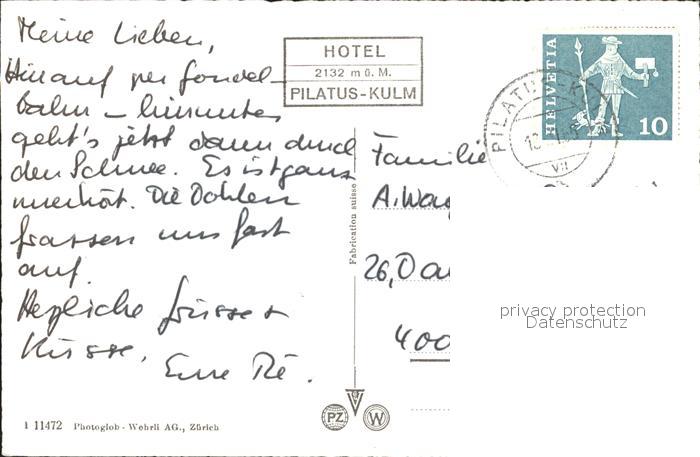 Meine Lieben,
Hinauf per Gondel-
bahn – hinunter
geht's jetzt dann durch
den Schnee. Es ist ganz
unerhört. Die Dohlen
frassen uns fast
auf.
Herzliche Grüsse +
Küsse,
Eure Ré.
HOTEL
2132 m ü. M.
PILATUS-KULM
HELVETIA
10
PILATUS-KU
VII
Familie
A. Wag
26, Da
400
Fabrication suisse
privacy protection
Datenschutz
PZ
W
1 11472 Photoglob - Wehrli AG., Zürich